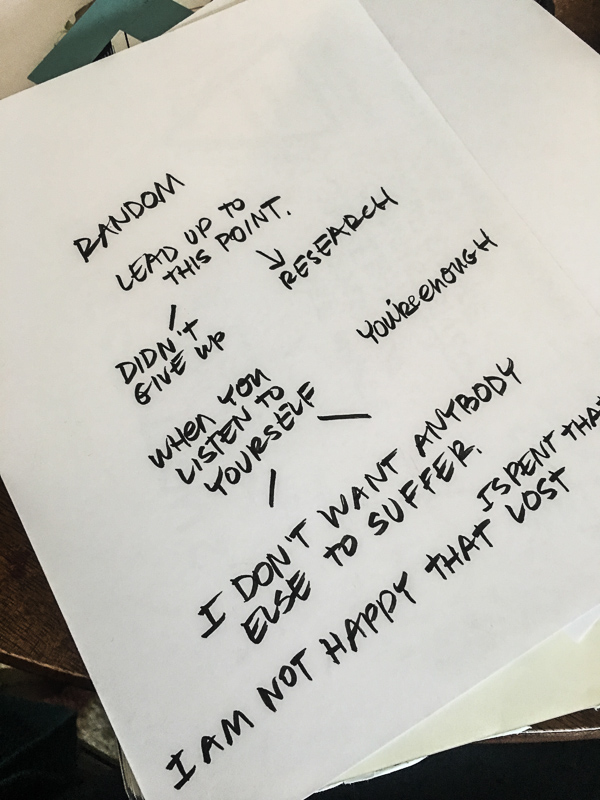 RANDOM
LEAD UP TO
THIS POINT.
RESEARCH
DIDN'T
GIVE UP
YOU'RE ENOUGH
WHEN YOU
LISTEN TO
YOURSELF
I DON'T WANT ANYBODY
ELSE TO SUFFER.
I SPENT THAT
I AM NOT HAPPY THAT LOST